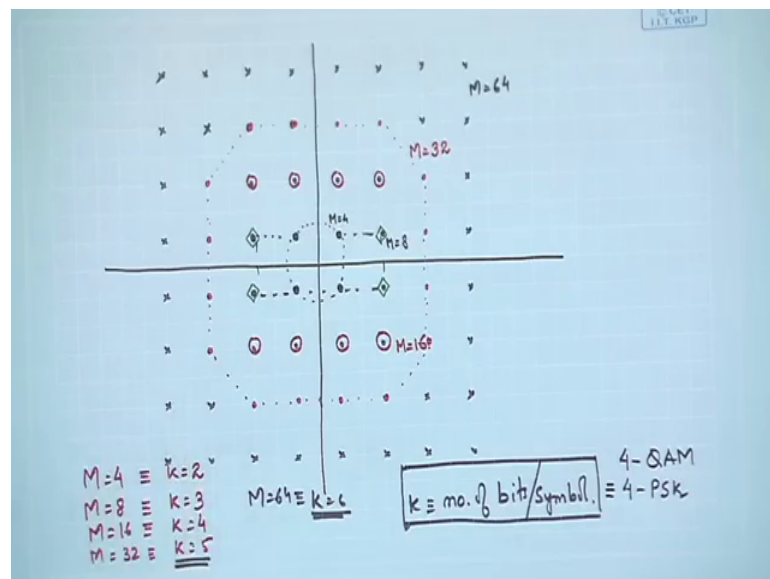 I.I.T. KGP
M=64
M=32
M=4
M=8
M=16
M=4 ≡ K=2
M=8 ≡ K=3
M=16 ≡ K=4
M=32 ≡ K=5
M=64 ≡ K=6
K ≡ no. of bits/symbol. ≡ 4-PSK
4-QAM